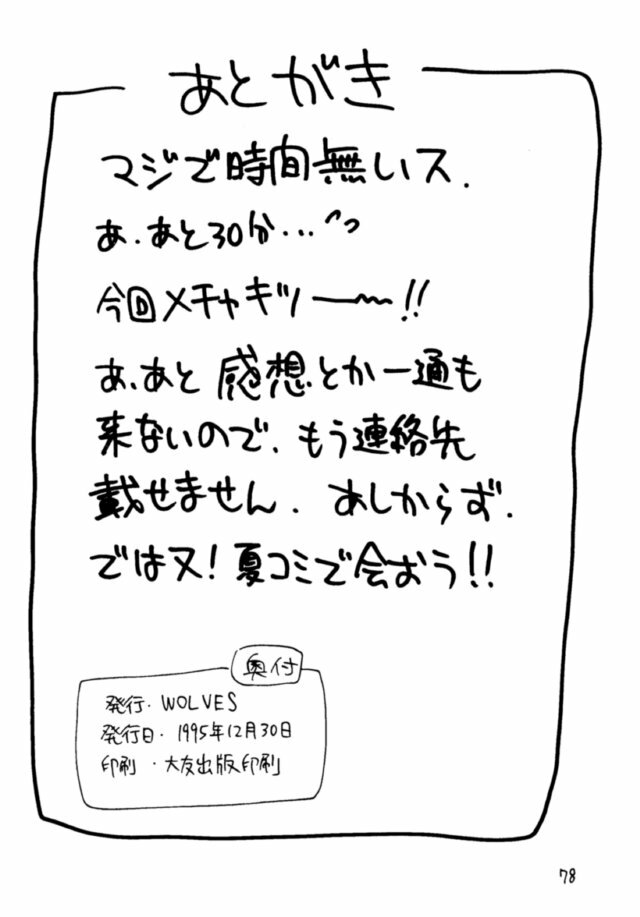 あとがき
マジで時間無いス.
あ.あと30分…^っ
今回メチャキツー〜!!
あ、あと感想とか一通も
来ないので、もう連絡先
載せません.あしからず.
では又!夏コミで会おう!!
奥付
発行・WOLVES
発行日・1995年12月30日
印刷・大友出版印刷
78